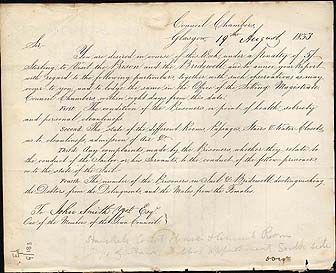 Council Chambers,
Glasgow, 19th August 1833
Sir,
You are desired in course of this Week, under a penalty of £5
Sterling, to Visit the Prison and the Bridewell and to draw your Report
with regard to the following particulars, together with such observations as may
occur to you, and to lodge the same in the Office of the Sitting Magistrate
Council Chambers, within eight days from this date.
First. The condition of the Prisoners in point of health, sobriety
and personal cleanliness
Second. The state of the different Rooms, Passages, Stairs & Water Closets,
as to cleanliness, admission of Air &c
Third. Any complaints made by the Prisoners, whether they relate to
the conduct of the Jailor or his Servants, to the conduct of the fellow prisoners
or to the state of the Jail
Fourth. The number of the Prisoners in Jail & Bridewell, distinguishing
the Debtors from the Delinquents, and the Males from the Females.
To John Smith ygst Esqr.
One of the Members of the Town Council
South side